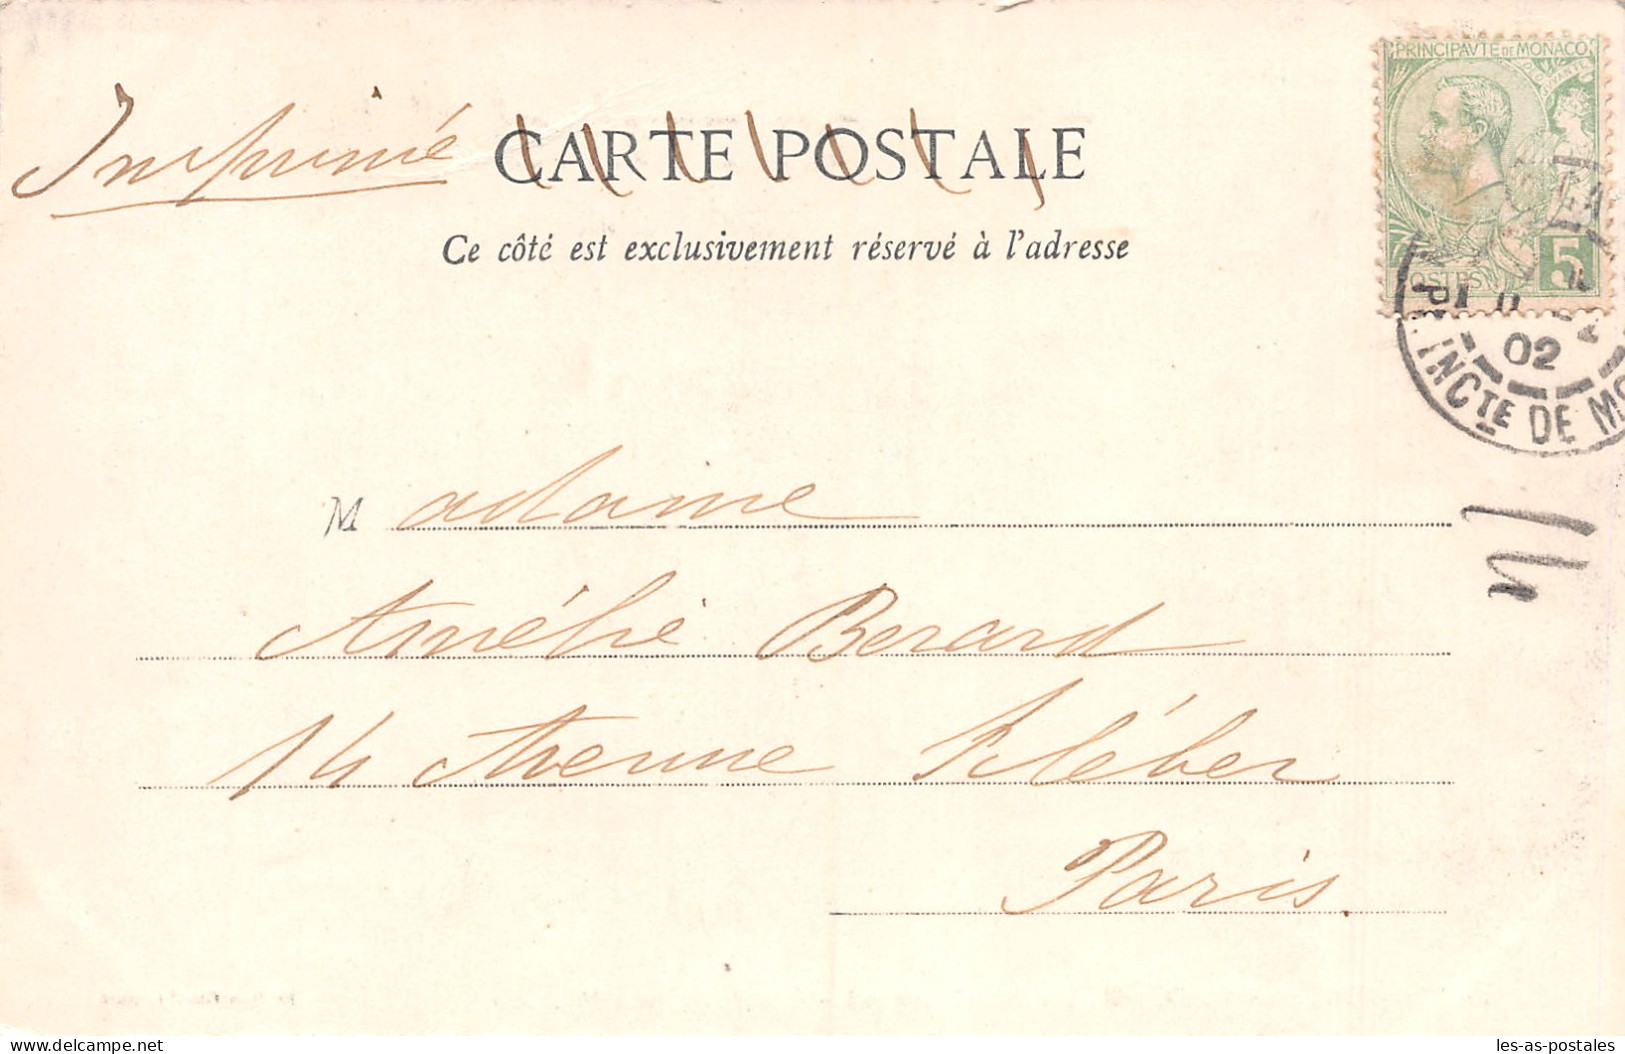 PRINCIPAVTÉ DE MONACO
Imprimé
CARTE POSTALE
Ce côté est exclusivement réservé à l'adresse
5
02
INCTE DE MO
M adame
Amélie Berard
14 Avenue Kléber
Paris.
delcampe.net
les-as-postales